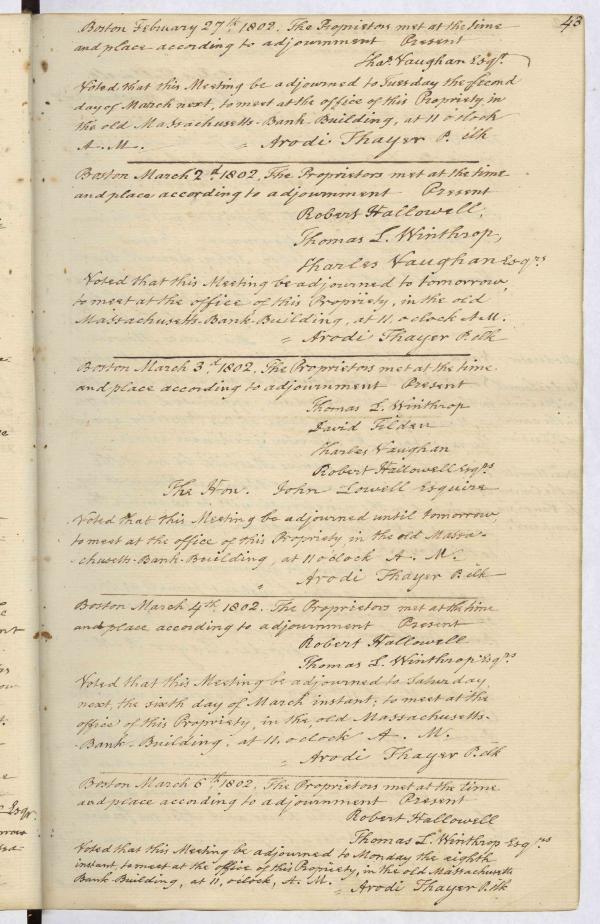 43
Boston February 27th. 1802. The Proprietors met at the time
and place according to adjournment Present
Chas. Vaughan Esqr.
Voted that this Meeting be adjourned to Tuesday the second
day of March next, to meet at the office of this Propriety in
the old Massachusetts-Bank Building, at 11 o'clock
A. M. " Arodi Thayer P. Clk
Boston March 2d. 1802. The Proprietors met at the time
and place according to adjournment Present
Robert Hallowell,
Thomas L. Winthrop,
Charles Vaughan Esqrs
Voted that this Meeting be adjourned to tomorrow,
to meet at the office of this Propriety, in the old
Massachusetts-Bank-Building, at 11. o'clock A.M.
" Arodi Thayer P. Clk
Boston March 3d. 1802. The Proprietors met at the time
and place according to adjournment Present
Thomas L. Winthrop
David Tilden
Charles Vaughan
Robert Hallowell Esqrs
The Hon. John Lowell Esquire
Voted that this Meeting be adjourned until tomorrow,
to meet at the office of this Propriety in the old Massa-
-chusetts-Bank-Building, at 11 o'clock A. M.
" Arodi Thayer P. Clk
Boston March 4th. 1802. The Proprietors met at the time
and place according to adjournment Present
Robert Hallowell
Thomas L. Winthrop Esqrs
Voted that this Meeting be adjourned to Saturday
next, the sixth day of March instant; to meet at the
office of this Propriety, in the old Massachusetts-
-Bank-Building, at 11. o'clock A. M.
" Arodi Thayer P. Clk
Boston March 6th. 1802. The Proprietors met at the time
and place according to adjournment Present
Robert Hallowell
Thomas L. Winthrop Esqrs
Voted that this Meeting be adjourned to Monday the eighth
instant, to meet at the office of this Propriety, in the old Massachusetts
Bank-Building, at 11, o'clock, A. M. " Arodi Thayer P. Clk